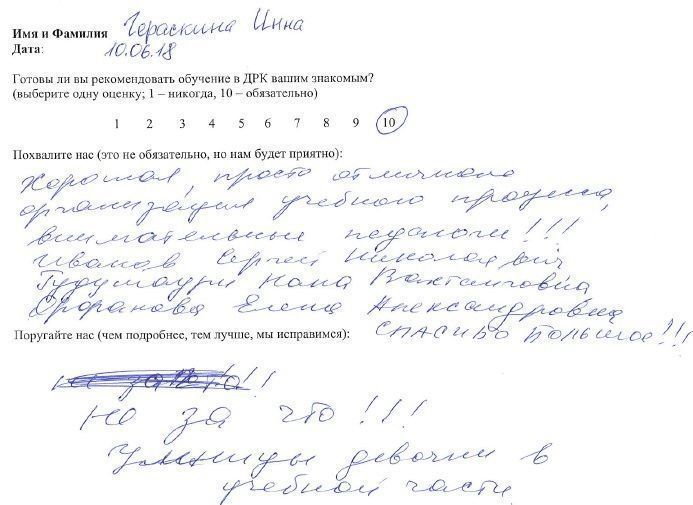 Имя и Фамилия Гераскина Инна
Дата: 10.06.18
Готовы ли вы рекомендовать обучение в ДРК вашим знакомым?
(выберите одну оценку; 1 – никогда, 10 – обязательно)
1 2 3 4 5 6 7 8 9 10
Похвалите нас (это не обязательно, но нам будет приятно):
Хорошая, просто отличная
организация учебного процесса,
внимательные педагоги!!!
Иванов Сергей Николаевич
Гудумаури Нана Вахтанговна
Елена Александровна
Поругайте нас (чем подробнее, тем лучше, мы исправимся): СПАСИБО БОЛЬШОЕ!!!
Не за что!!!
Умницы девочки в
учебной части